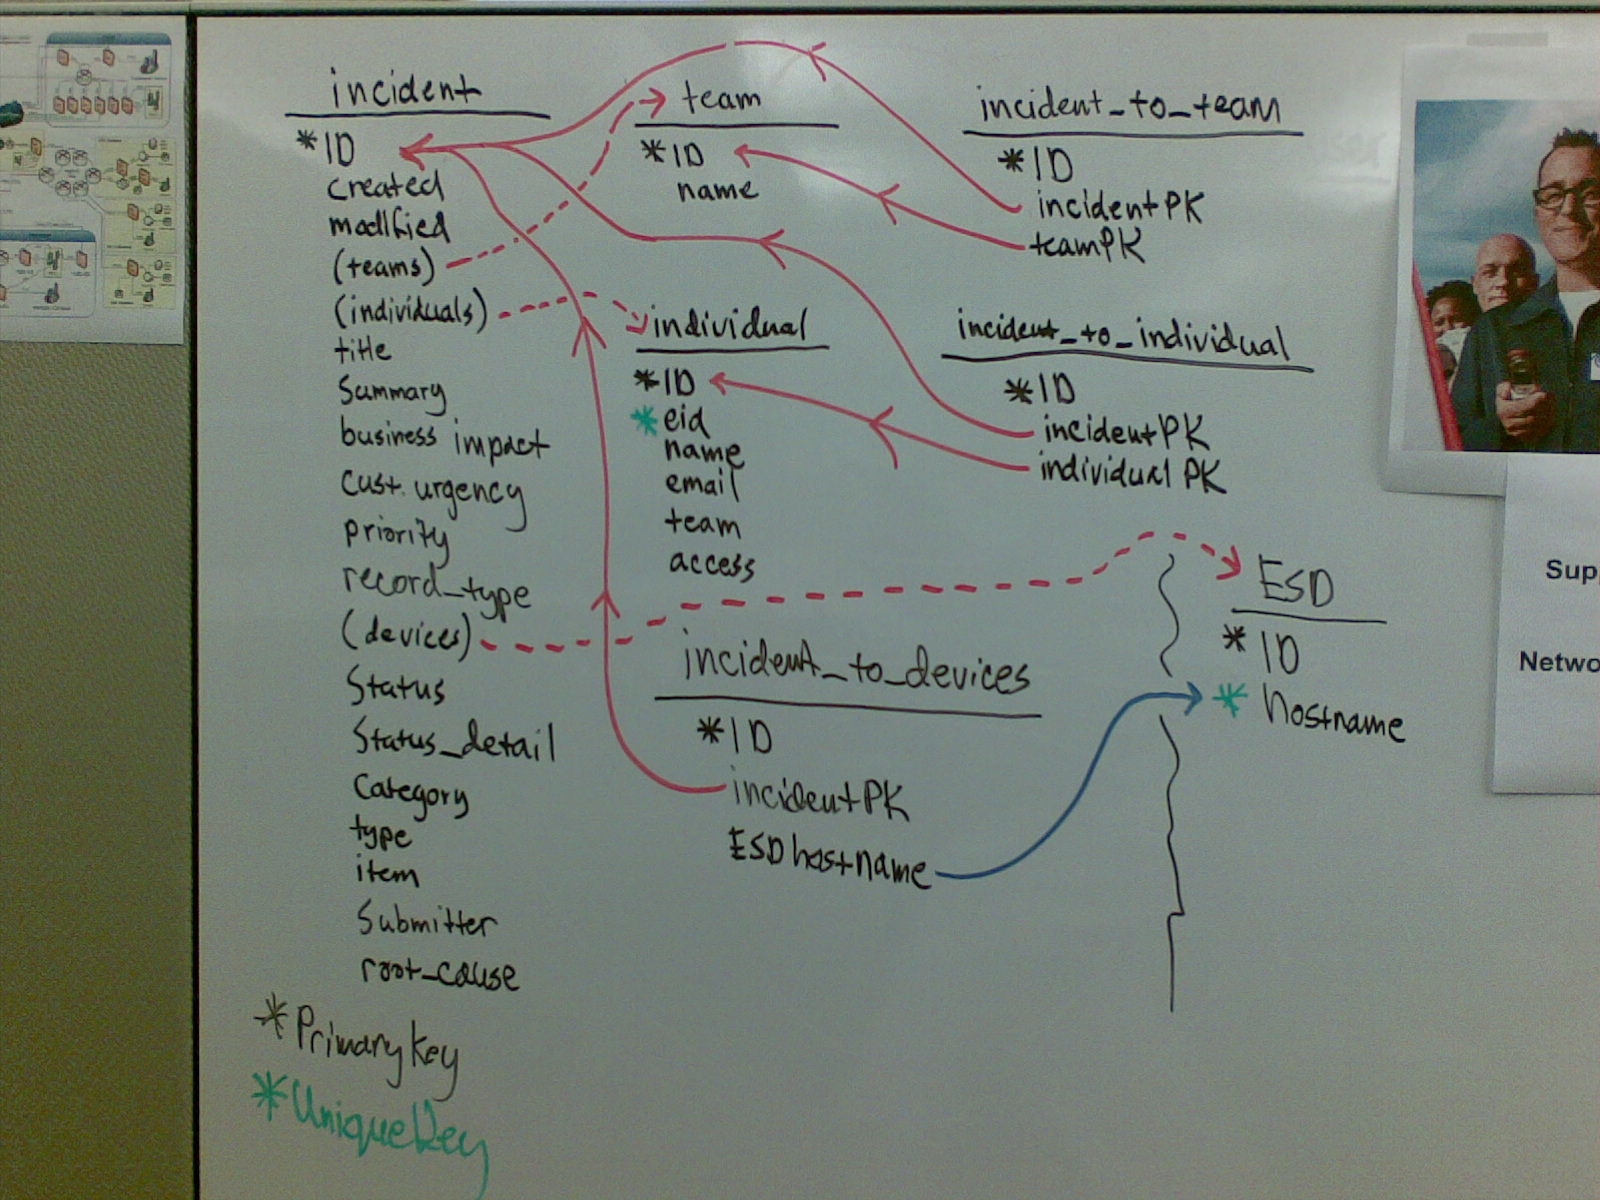 incident
*ID
created
modified
(teams)
(individuals)
title
Summary
business impact
cust. urgency
priority
record_type
(devices)
Status
Status_detail
Category
type
item
Submitter
root_cause
*Primary key
*Unique key
team
*ID
name
individual
*ID
*eid
name
email
team
access
incident_to_devices
*ID
incidentPK
ESDhostname
incident_to_team
*ID
incidentPK
teamPK
incident_to_individual
*ID
incidentPK
individualPK
ESD
*ID
*hostname